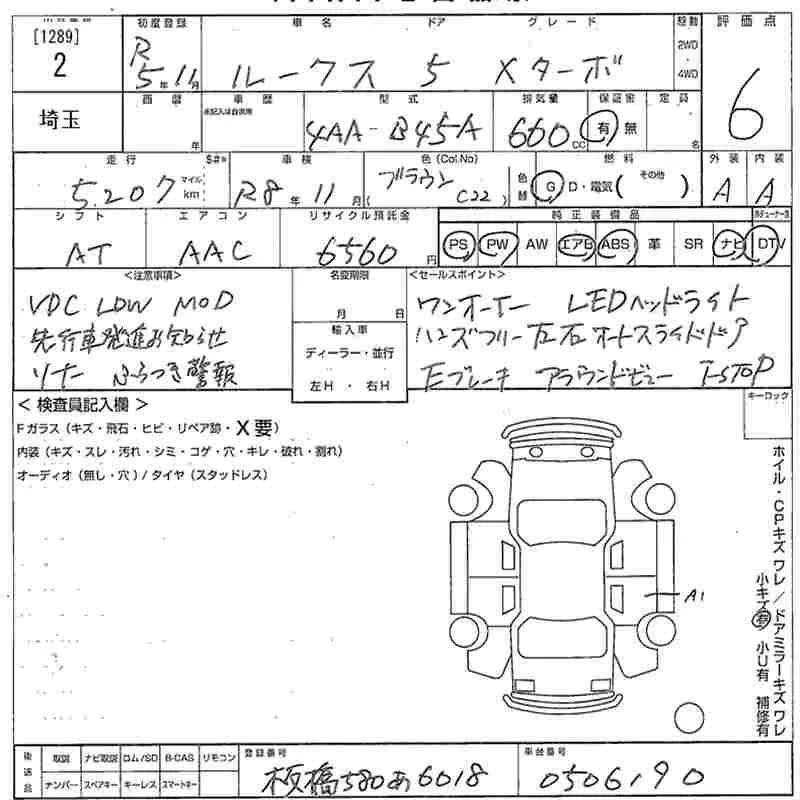 [1289]
2
初度登録
R
5年11月
車名
ルークス
ドア
5
グレード
Xターボ
駆動
2WD
4WD
評価点
6
埼玉
西暦
年
車歴
未記入は自家用
型式
4AA-B45A
排気量
660cc
保証書
有 無
定員
名
走行
5,207
マイル
km
S#*
車検
R8年11月
色(Col.No)
ブラウン
( C22 )
色替
燃料
G D・電気( その他 )
外装
A
内装
A
シフト
AT
エアコン
AAC
リサイクル預託金
6560円
純正装備品
PS PW AW エアB ABS 革 SR ナビ DTV
<注意事項>
VDC LDW MOD
先行車発進お知らせ
ソナー ふらつき警報
名変期限
月 日
輸入車
ディーラー・並行
左H ・ 右H
<セールスポイント>
ワンオーナー LEDヘッドライト
ハンズフリー左右オートスライドドア
Eブレーキ アラウンドビュー I-STOP
< 検査員記入欄 >
Fガラス(キズ・飛石・ヒビ・リペア跡・X要)
内装(キズ・スレ・汚れ・シミ・コゲ・穴・キレ・破れ・割れ)
オーディオ(無し・穴)/タイヤ(スタッドレス)
キーロック
A1
ホイル・CPキズ ワレ/ドアミラーキズ ワレ
小キズ有 小U有 補修有
後送品
取説 ナビ取説 ロム/SD B-CAS リモコン
ナンバー スペアキー キーレス スマートキー
登録番号
板橋580あ6018
車台番号
0506190